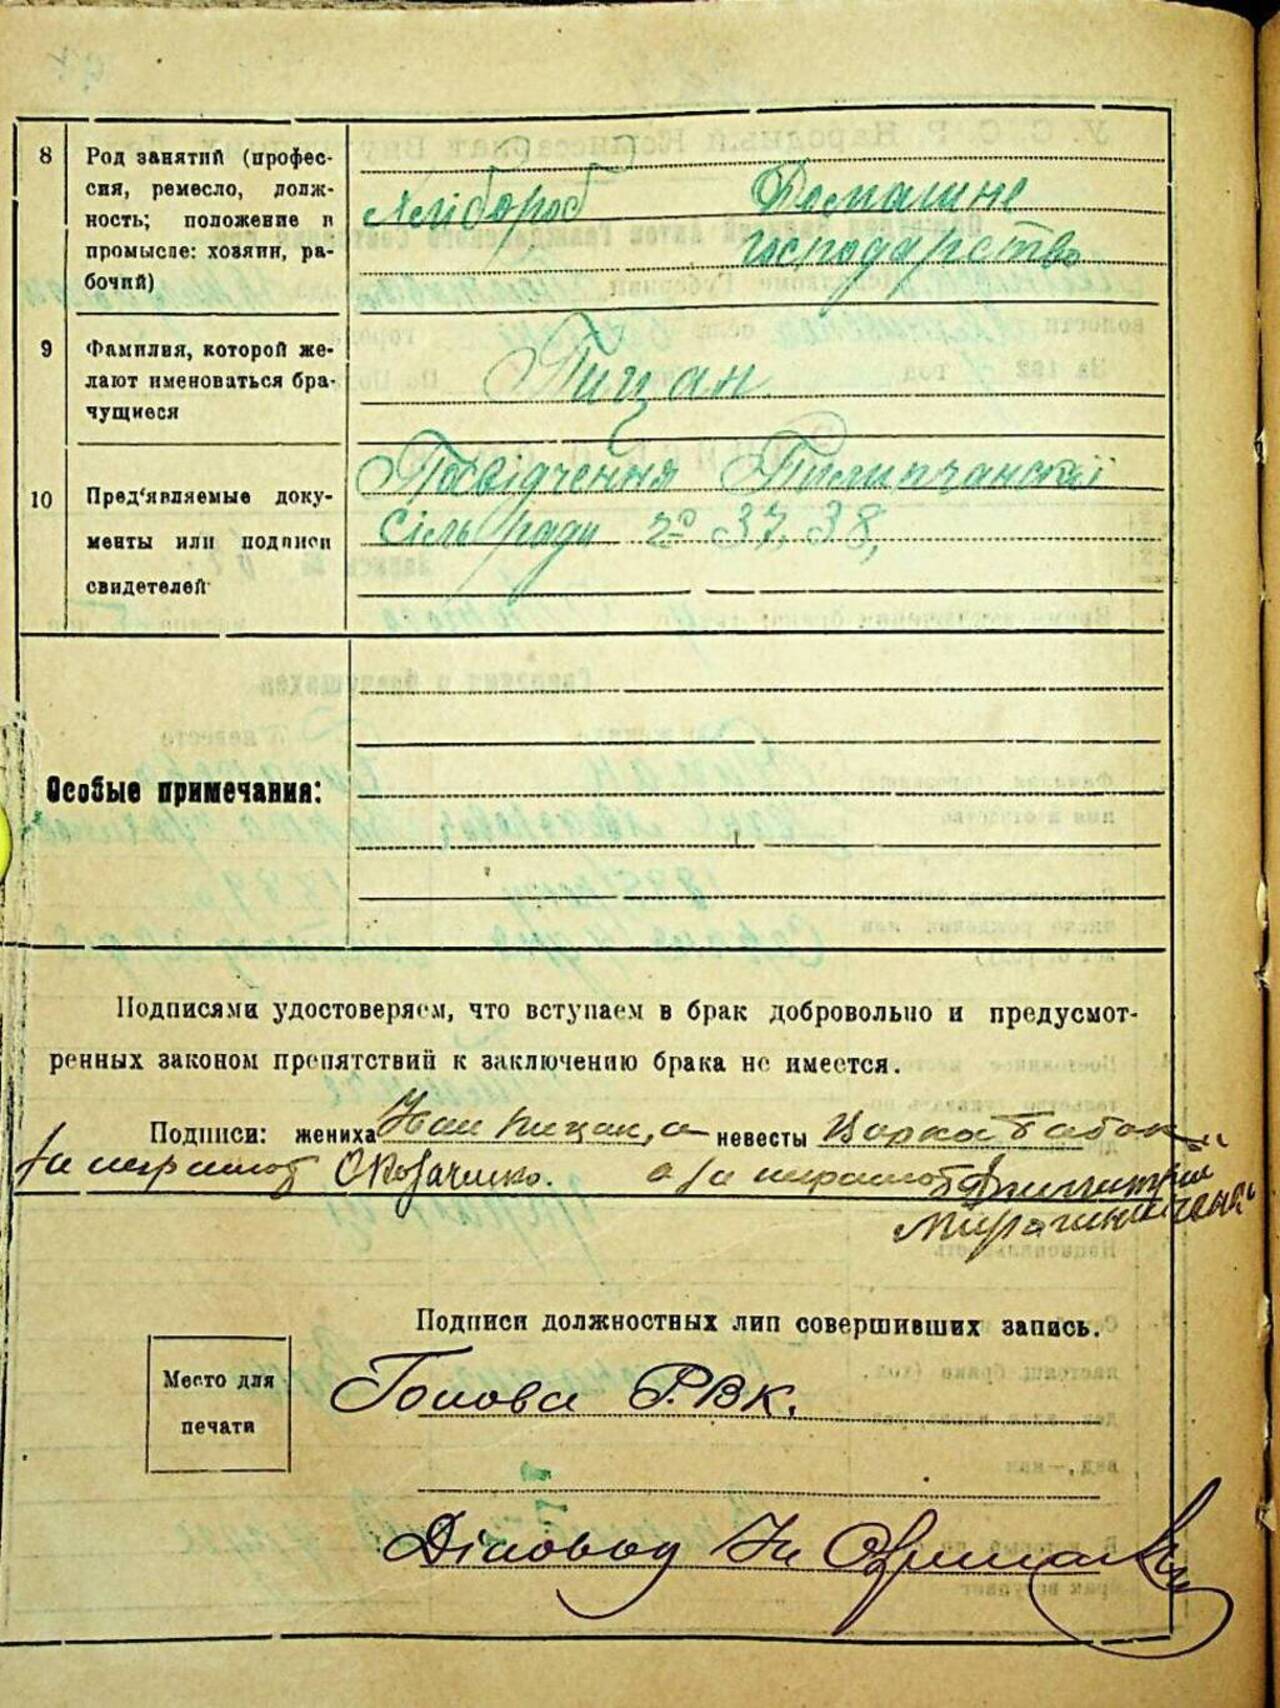 8 Род занятий (профес-
сия, ремесло, долж-
ность; положение в
промысле: хозяин, ра-
бочий)
Хлібороб Домашнє
господарство
9 Фамилия, которой же-
лают именоваться бра-
чущиеся
Пицан
10 Пред'являемые доку-
менты или подписи
свидетелей
Посвідчення
Сільради № 37, 38,
Особые примечания:
Подписями удостоверяем, что вступаем в брак добровольно и предусмот-
ренных законом препятствий к заключению брака не имеется.
Подписи: жениха Иван Пицан, а невесты
О Козаченко. а за
Подписи должностных лиц совершивших запись.
Место для
печати
Голова Р.В.К.
Діловод